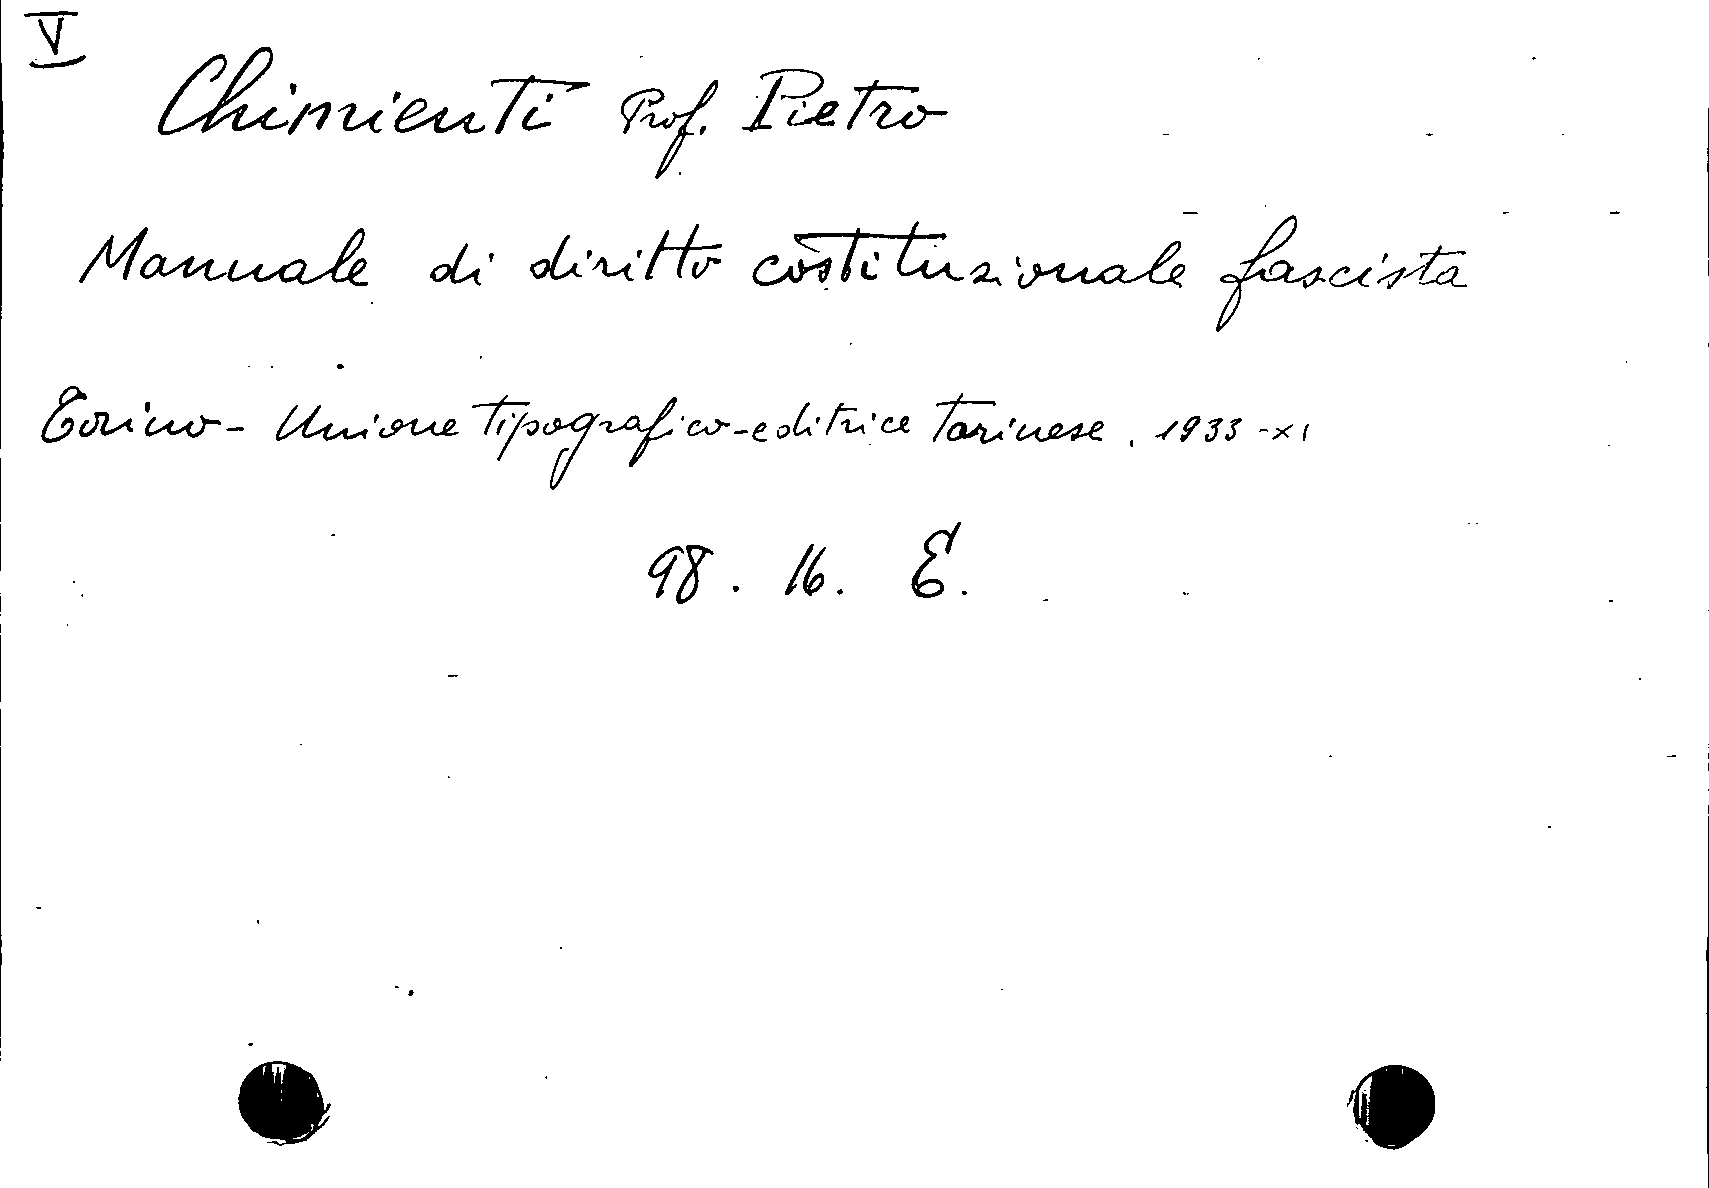 V
Chimienti Prof. Pietro
Manuale di diritto costituzionale fascista
Torino - Unione tipografico-editrice torinese. 1933-XI
98. 16. E.